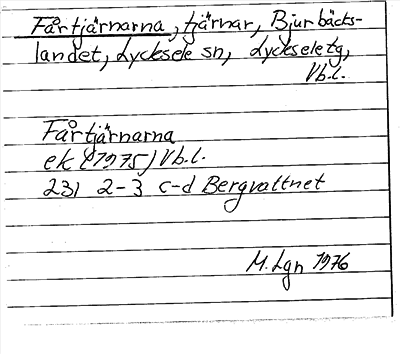 Fårtjärnarna, tjärnar, Bjurbäcks-
landet, Lycksele sn, Lycksele tg,
Vb.l.
Fårtjärnarna
ek (1975) Vb.l.
23J 2-3 c-d Bergvattnet
M. Lgn 1976